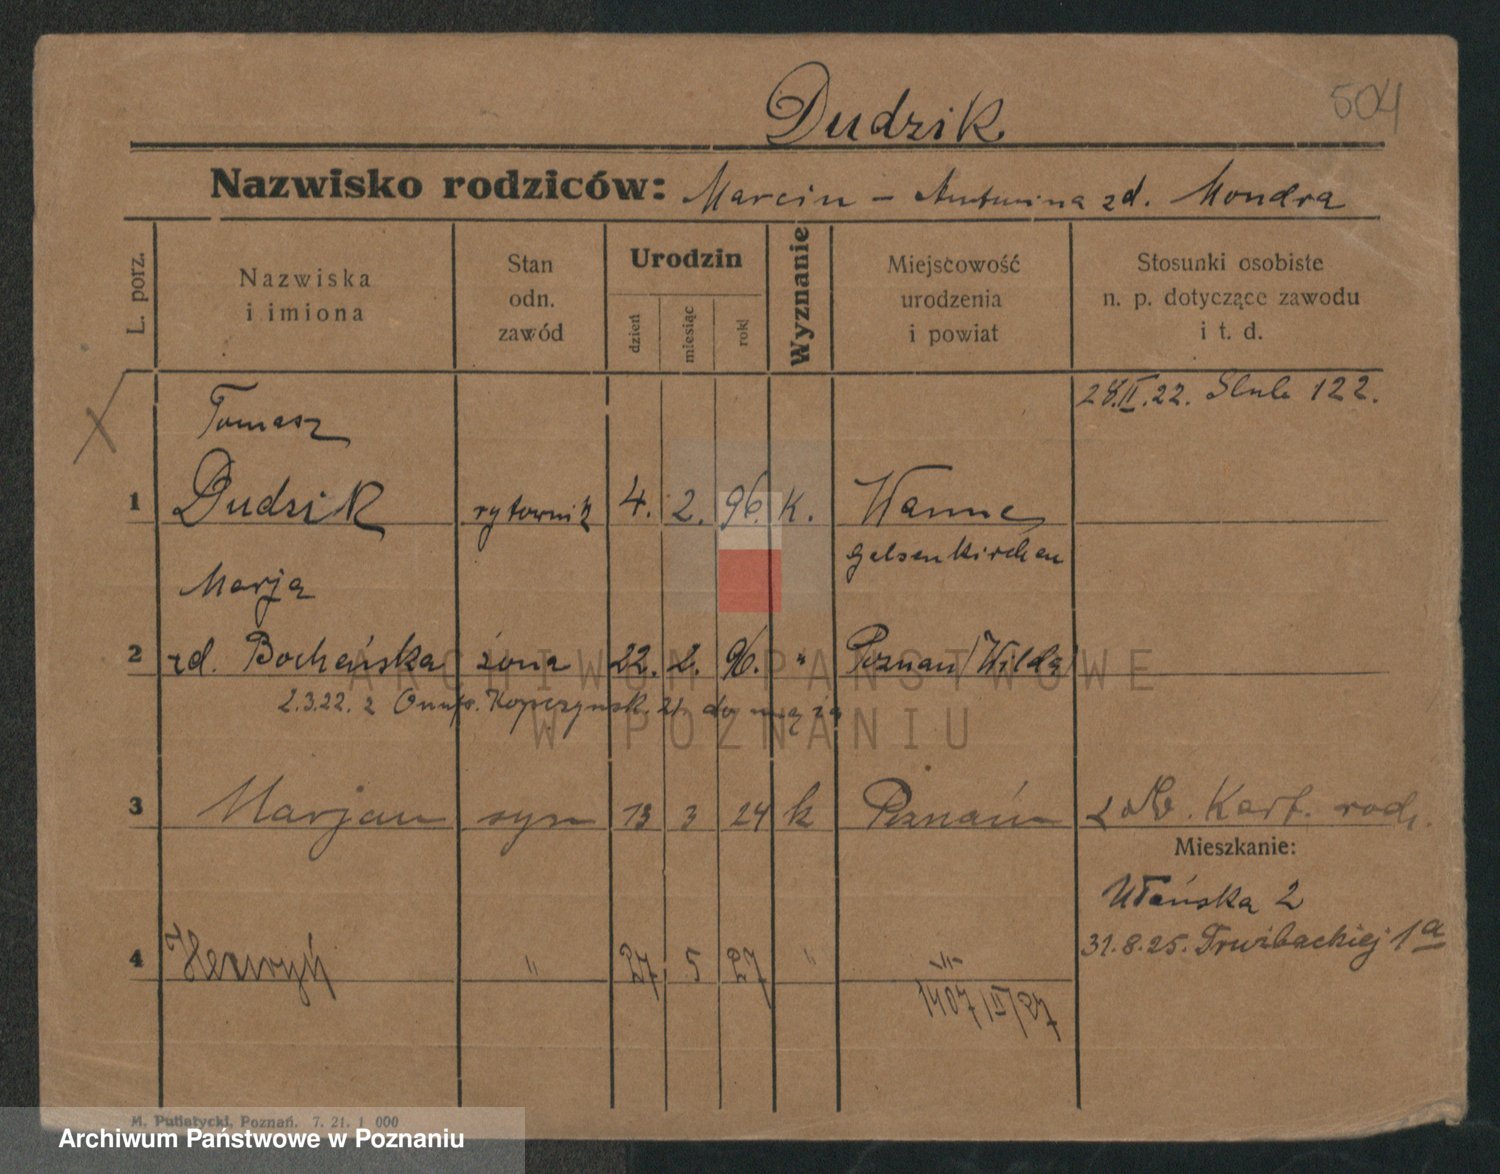 Dudzik
504
Nazwisko rodziców: Marcin – Antonina zd. Mondra
L. porz.
Nazwiska i imiona
Stan odn. zawód
Urodzin
dzień
miesiąc
rok
Wyznanie
Miejscowość urodzenia i powiat
Stosunki osobiste n. p. dotyczące zawodu i t. d.
28.II.22. 122.
Tomasz
1 Dudzik rytownik 4. 2. 96. K. Wanne
Gelsenkirchen
Marja
2 zd. Bocheńska żona 22. 2. 96. " Poznań/Wilda
2.3.22. z do męża
3 Marjan syn 13 3 24 k Poznań Kart. rodz.
Mieszkanie:
Ułańska 2
31.8.25. 1a
4 Henryk " 27 5 27 " -"-
1407/II/27
M. Putiatycki, Poznań. 7. 21. 1 000
ARCHIWUM PAŃSTWOWE
W POZNANIU
Archiwum Państwowe w Poznaniu